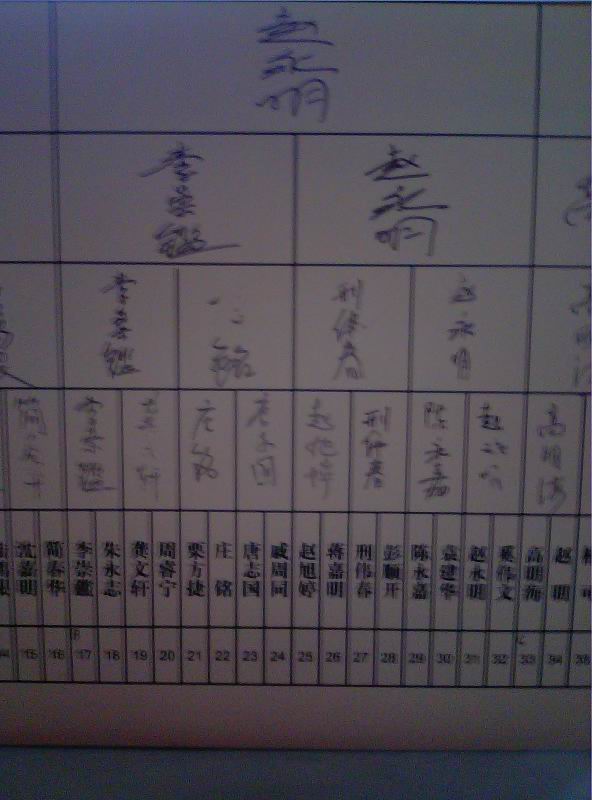 赵永明
李崇鑑
赵永明
李崇鑑
铭
刑伟春
赵永明
简
李崇鑑
庄铭
唐志国
赵旭婷
刑伟春
陈永嘉
赵永明
高明海
沈嘉明
简春华
李崇鑑
朱永志
龚文轩
周睿宁
栗方捷
庄铭
唐志国
戚周同
赵旭婷
蒋嘉明
刑伟春
彭顺开
陈永嘉
袁建华
赵永明
伟文
高明海
赵明
15 16 17 18 19 20 21 22 23 24 25 26 27 28 29 30 31 32 33 34 35